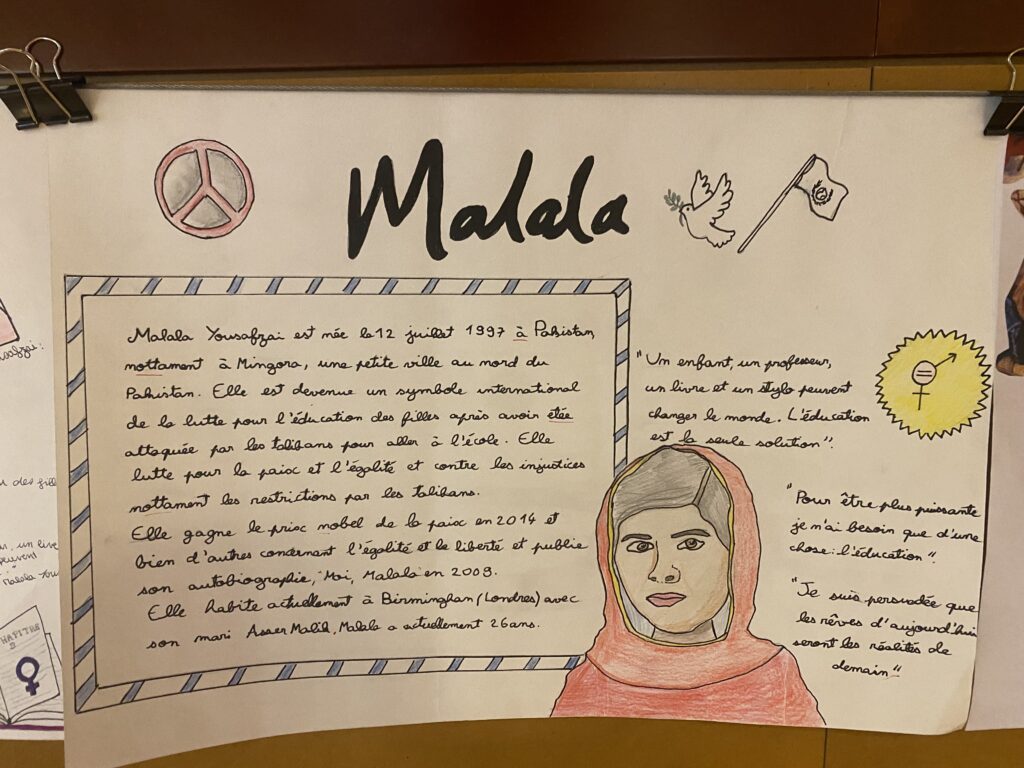 Malala
Malala Yousafzai est née le 12 juillet 1997 à Pakistan,
nottament à Mingora, une petite ville au nord du
Pakistan. Elle est devenue un symbole international
de la lutte pour l'éducation des filles après avoir étée
attaquée par les talibans pour aller à l'école. Elle
lutte pour la paix et l'égalité et contre les injustices
nottament les restrictions par les talibans.
Elle gagne le prix nobel de la paix en 2014 et
bien d'autres concernant l'égalité et la liberté et publie
son autobiographie, "Moi, Malala" en 2009.
Elle habite actuellement à Birminghan (Londres) avec
son mari Asser Malik, Malala a actuellement 26 ans.
"Un enfant, un professeur,
un livre et un stylo peuvent
changer le monde. L'éducation
est la seule solution".
"Pour être plus puissante
je n'ai besoin que d'une
chose: l'éducation".
"Je suis persuadée que
les rêves d'aujourd'hui
seront les réalités de
demain"
un live
peuvent
HAPITRE
2